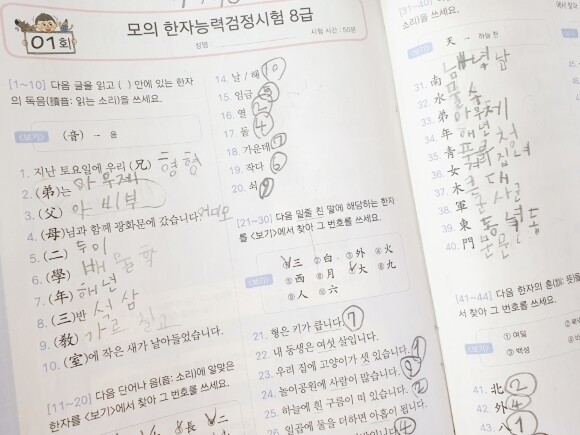 01회
모의 한자능력검정시험 8급
성명
시험 시간 : 50분
[1~10] 다음 글을 읽고 ( ) 안에 있는 한자
의 독음(讀音: 읽는 소리)을 쓰세요.
<보기> (音) → 음
1. 지난 토요일에 우리 (兄) 형 형
2. (弟)는 아우제
3. (父) 아비부
4. (母)님과 함께 광화문에 갔습니다. 어미모
5. (二) 두이
6. (學) 배울학
7. (年) 해년
8. (三)반 석삼
9. (敎) 가르칠교
10. (室)에 작은 새가 날아들었습니다.
[11~20] 다음 단어나 음(音: 소리)에 알맞은
한자를 <보기>에서 찾아 그 번호를 쓰세요.
長 二
14. 날 / 해 10
15. 임금
16. 열 2
17. 둘 4
18. 가운데 7
19. 작다
20. 쇠
[21~30] 다음 밑줄 친 말에 해당하는 한자
를 <보기>에서 찾아 그 번호를 쓰세요.
<보기>
三 ② 白 ③ 外 ④ 火
⑤ 西 ⑥ 月 大 ⑧ 九
⑨ 人 ⑩ 六
21. 형은 키가 큽니다. 7
22. 내 동생은 여섯 살입니다.
23. 우리 집에 고양이가 셋 있습니다. 1
24. 놀이공원에 사람이 많습니다.
25. 하늘에 흰 구름이 떠 있습니다. 2
26. 일곱에 둘을 더하면 아홉이 됩니다.
[31~40]
소리)을 쓰세요.
<보기> 天 → 하늘 천
31. 南 남녘남
32. 水 물 수
33. 弟 아우제
34. 年 해년
35. 靑 푸를 청
36. 女 계집녀
37. 大
38. 軍 군사군
39. 東 동녘동
40. 門 문문
[41~44] 다음 한자의 훈(訓: 뜻)을
서 찾아 그 번호를 쓰세요.
<보기>
① 여덟
③ 백성
41. 北 2
42. 外 4
43. 八 1